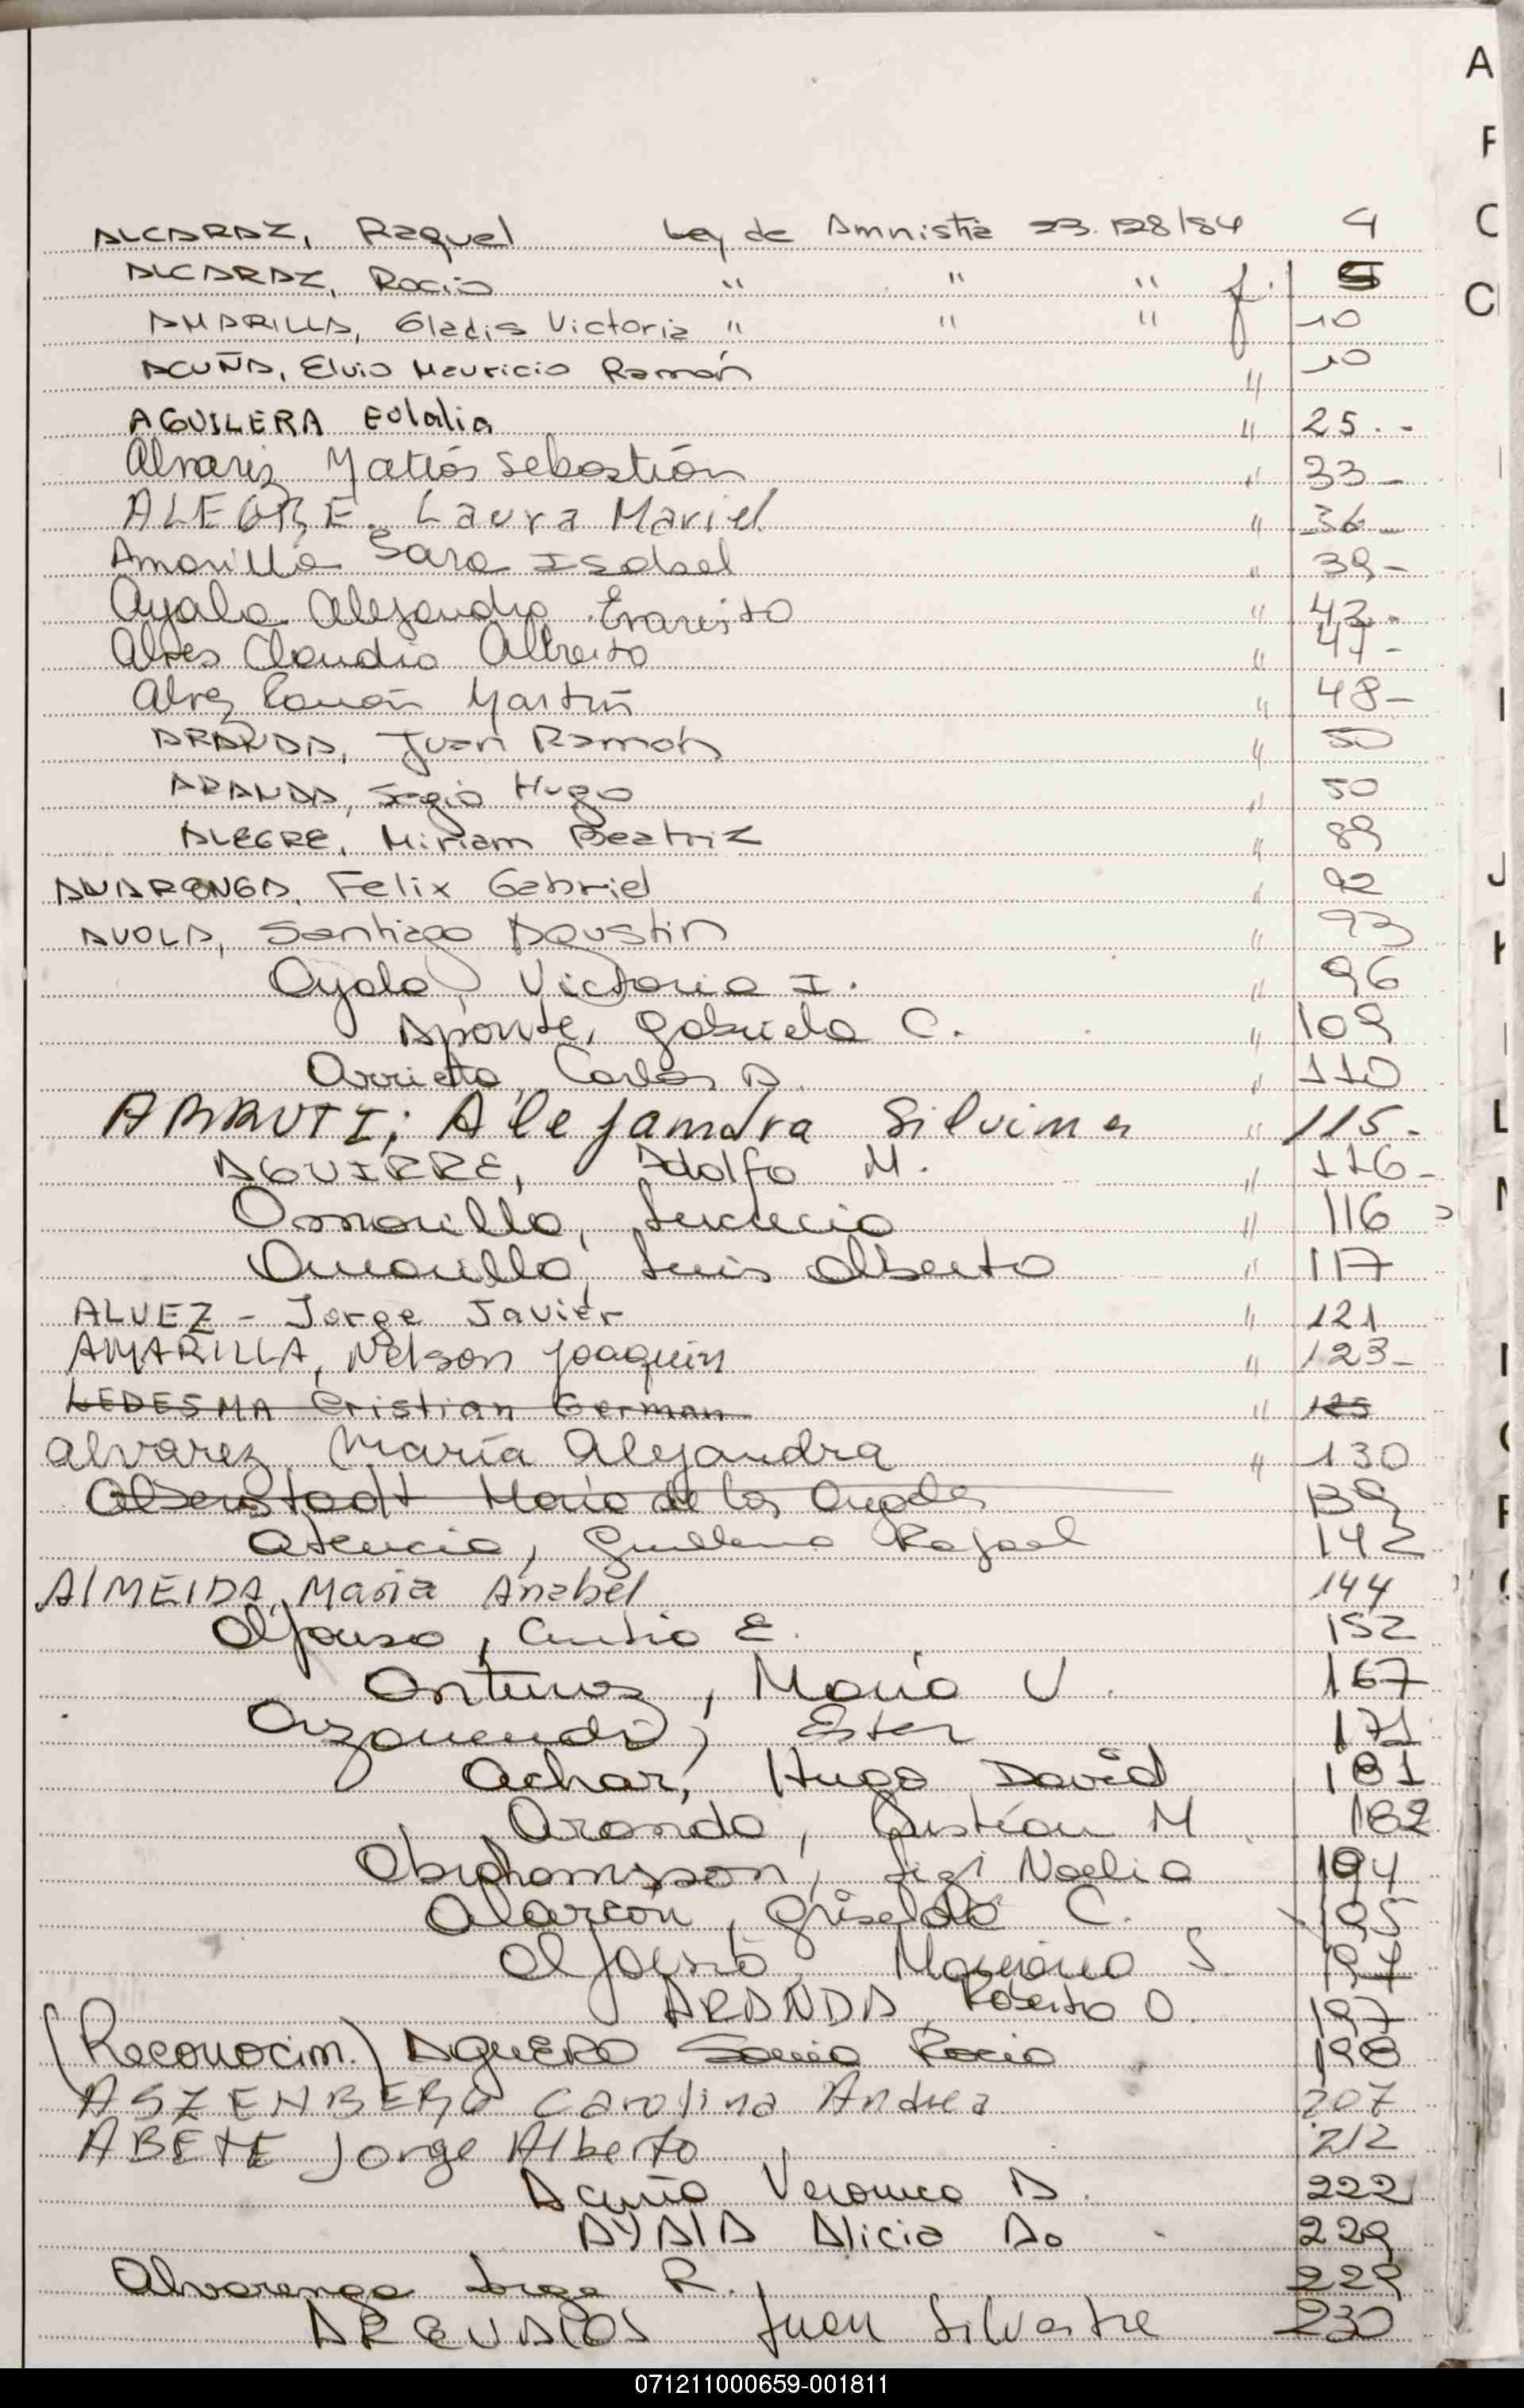 ALCARAZ, Raquel Ley de Amnistia 23.128/84 4
ALCARAZ, Rocio " " " f. 5
AMARILLA, Gladis Victoria " " " f 10
ACUÑA, Elvio Mauricio Ramón " 10
AGUILERA Eulalia " 25.-
Alvariz Matías Sebastián " 33-
ALEGRE. Laura Mariel " 36-
Amarilla Sara Isabel " 39-
Ayala Alejandro Evaristo " 43-
Alves Claudio Alberto " 47-
Alvez Ramón Martín " 48-
ARANDA, Juan Ramón " 50
ARANDA, Segio Hugo " 50
ALEGRE, Miriam Beatriz " 89
Felix Gabriel " 92
AVOLA, Santiago Agustin " 93
Ayala, Victoria I. " 96
Aponte, Gabriela C. " 109
Arrieta, Carlos A. " 110
ARRUTI; Alejandra Silvina " 115-
AGUIRRE, Adolfo M. " 116-
Amarilla, " 116
Amarilla, Luis Alberto " 117
ALVEZ - Jorge Javier " 121
AMARILLA, Nelson Joaquin " 123-
LEDESMA Cristian German " 125
Alvarez María Alejandra " 130
María de los 139
Atencio, Guillermo Rafael 142
ALMEIDA, Maria Anabel 144
Alfonso, E. 152
Antunez, María V. 167
Ester 171
Achar, Hugo David 181
Aranda, Cristian M 182
Abrahamsson, Noelia 194
Alarcón, Griselda C. 195
Mariana S. 197
ARANDA, Roberto O. 197
(Reconocim.) AGUERO Sonia Rocio 198
ASZENBERG Carolina Andrea 207
ABETE Jorge Alberto 212
Acuña Veronica A. 222
AYALA Alicia A. 229
Alvarenga Jorge R. 229
AREVALOS Juan Silvestre 230
A
F
C
I
J
L
071211000659-001811